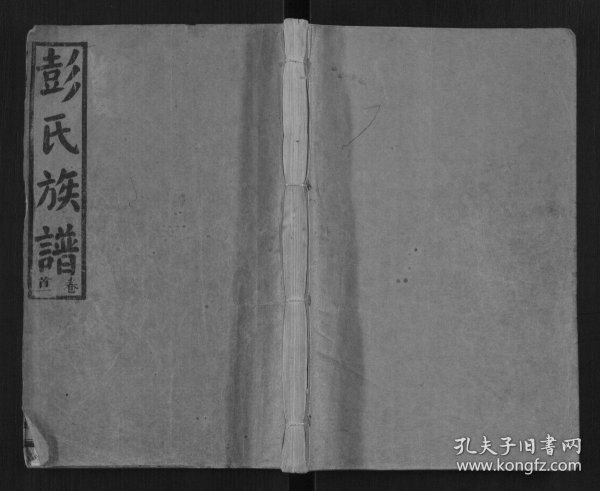 彭氏族譜
卷首
孔夫子旧書网
www.kongfz.com